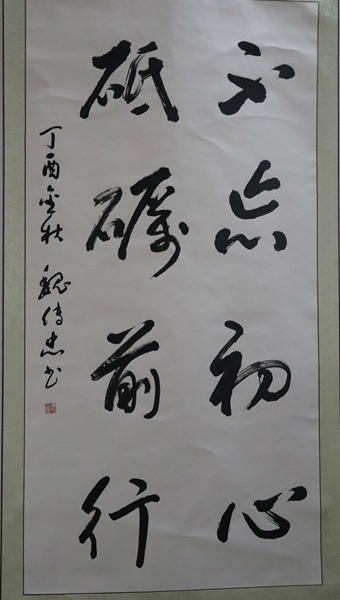 不忘初心
砥砺前行
丁酉金秋 魏传忠书